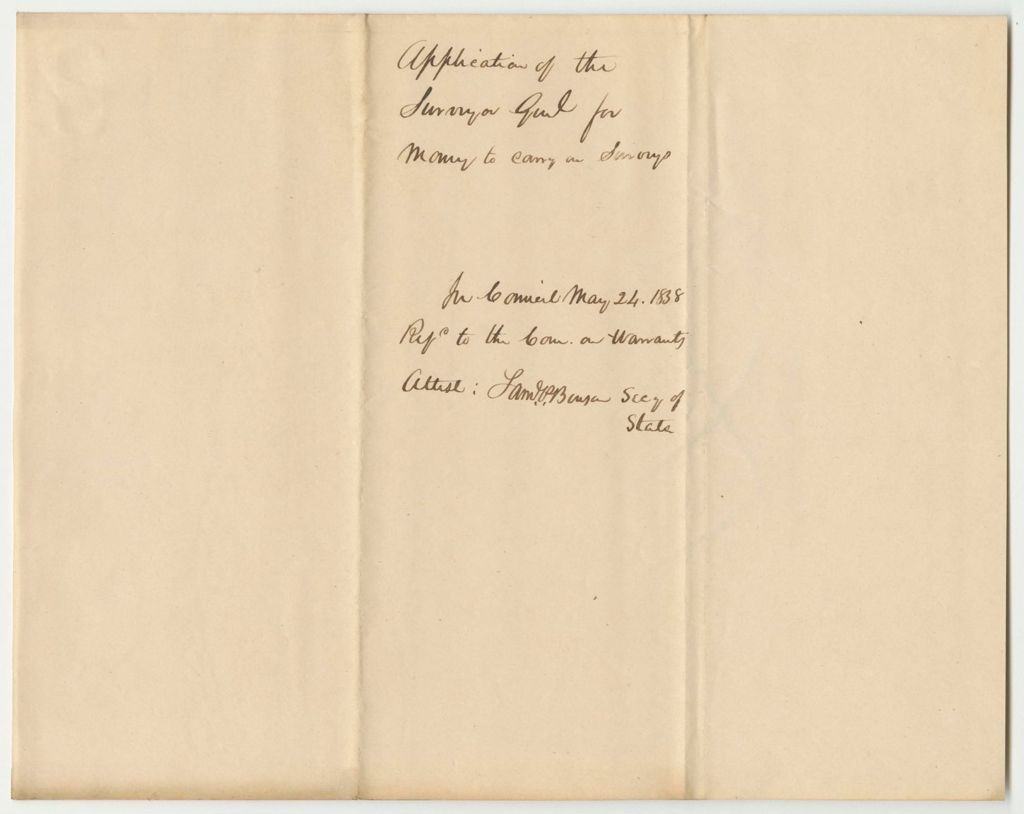 Application of the
Surveyor Genl for
Money to carry on Surveys
In Council May 24. 1838
Refd to the Com. on Warrants
Attest: Saml P. Benson Secy of
State